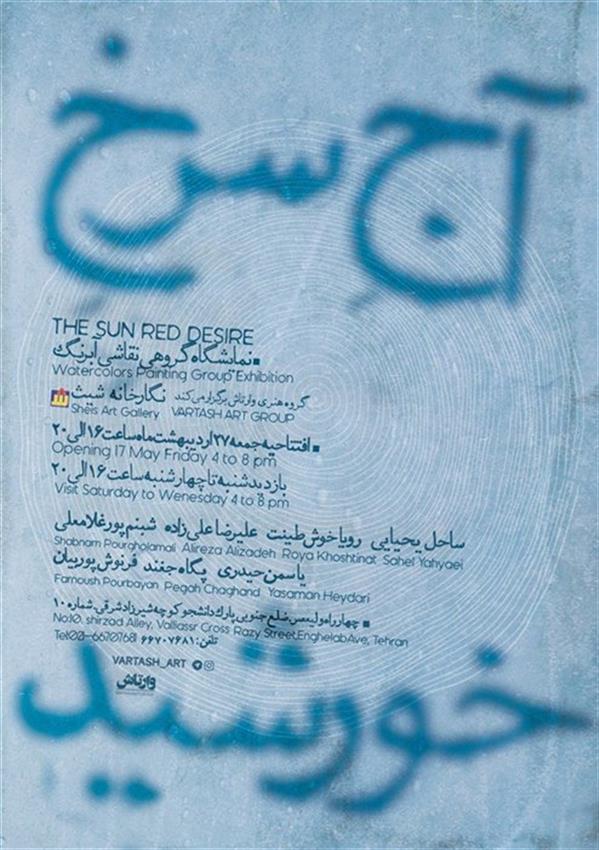 آج سرخ
THE SUN RED DESIRE
نمایشگاه گروهی نقاشی آبرنگ
Watercolors Painting Group Exhibition
گروه هنری وارتاش برگزار می کند نگارخانه شیث
Sheis Art Gallery VARTASH ART GROUP
افتتاحیه جمعه ۲۷ اردیبهشت ماه ساعت ۱۶ الی ۲۰
Opening 17 May Friday 4 to 8 pm
بازدید شنبه تا چهارشنبه ساعت ۱۶ الی ۲۰
Visit Saturday to Wenesday 4 to 8 pm
ساحل یحیایی رویا خوش طینت علیرضا علی زاده شبنم پورغلامعلی
Shabnam Pourgholamali Alireza Alizadeh Roya Khoshtinat Sahel Yahyaei
یاسمن حیدری پگاه جغند فرنوش پوربیان
Farnoush Pourbayan Pegah Chaghand Yasaman Heydari
چهارراه ولیعصر، ضلع جنوبی پارک دانشجو کوچه شیرزاد شرقی، شماره ۱۰
No:10, shirzad Alley, Valliassr Cross Razy Street, Enghelab Ave, Tehran
Tel:00-66707681 تلفن: ۶۶۷۰۷۶۸۱
VARTASH_ART
وارتاش
خورشید